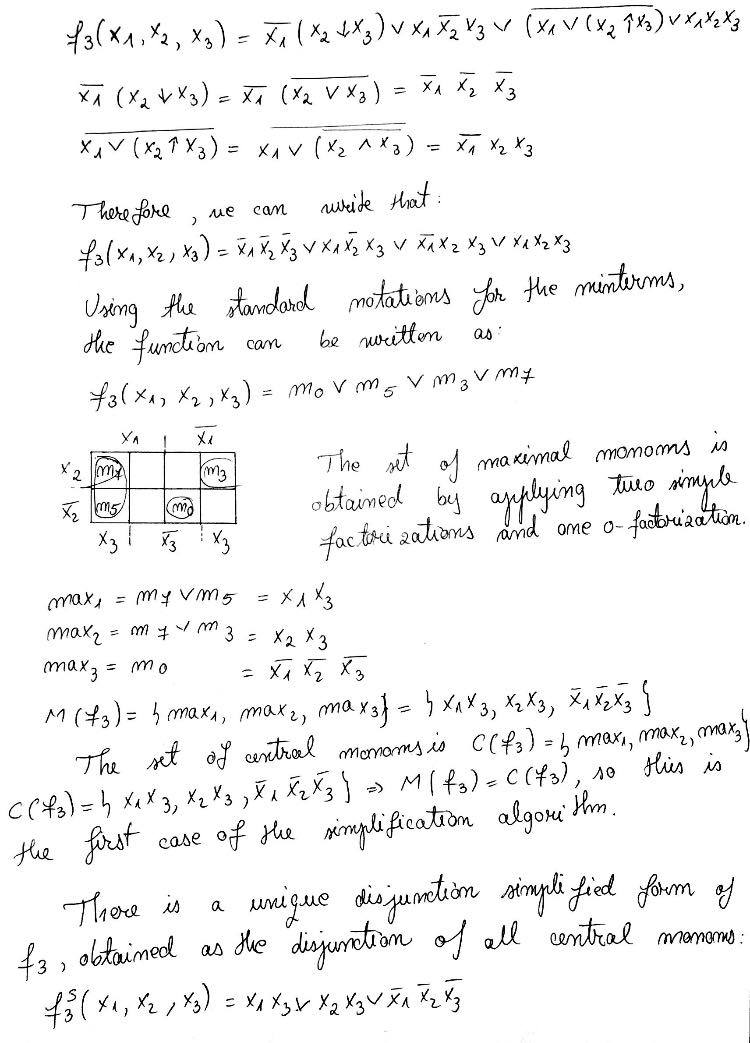 f₃(x₁, x₂, x₃) = x̅₁ (x₂ ↓ x₃) ∨ x₁ x̅₂ x₃ ∨ (x̅₁̅ ̅∨̅ ̅(̅x̅₂̅ ̅↑̅ ̅x̅₃̅) ∨ x₁x₂x₃
x̅₁ (x₂ ↓ x₃) = x̅₁ (x̅₂̅ ̅∨̅ ̅x̅₃̅) = x̅₁ x̅₂ x̅₃
x̅₁̅ ̅∨̅ ̅(̅x̅₂̅ ̅↑̅ ̅x̅₃̅)̅ = x̅₁̅ ̅∨̅ ̅(̅x̿₂̿ ̿∧̿ ̿x̿₃̿)̅ = x̅₁ x₂ x₃
Therefore, we can write that:
f₃(x₁, x₂, x₃) = x̅₁ x̅₂ x̅₃ ∨ x₁ x̅₂ x₃ ∨ x̅₁ x₂ x₃ ∨ x₁ x₂ x₃
Using the standard notations for the minterms,
the function can be written as:
f₃(x₁, x₂, x₃) = m₀ ∨ m₅ ∨ m₃ ∨ m₇
x₁ x̅₁
x₂ m₇ m₃
x̅₂ m₅ m₀
x₃ x̅₃ x₃
The set of maximal monoms is
obtained by applying two simple
factorizations and one 0-factorization.
max₁ = m₇ ∨ m₅ = x₁ x₃
max₂ = m₇ ∨ m₃ = x₂ x₃
max₃ = m₀ = x̅₁ x̅₂ x̅₃
M(f₃) = {max₁, max₂, max₃} = {x₁x₃, x₂x₃, x̅₁x̅₂x̅₃}
The set of central monoms is C(f₃) = {max₁, max₂, max₃}
C(f₃) = {x₁x₃, x₂x₃, x̅₁ x̅₂ x̅₃} ⇒ M(f₃) = C(f₃), so this is
the first case of the simplification algorithm.
There is a unique disjunction simplified form of
f₃, obtained as the disjunction of all central monoms:
f₃ˢ(x₁, x₂, x₃) = x₁x₃ ∨ x₂x₃ ∨ x̅₁ x̅₂ x̅₃